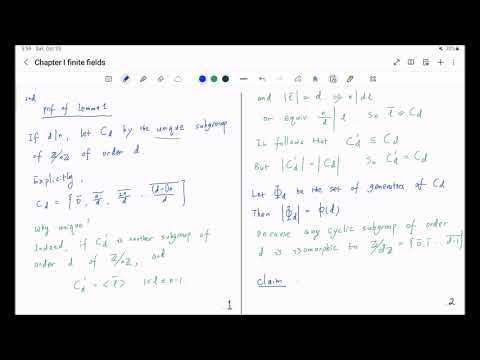 5:59 Sat, Oct 15
Chapter I finite fields
2nd
prf of Lemma 1
If d|n, let C_d by the unique subgroup
of Z/nZ of order d.
Explicitly,
C_d = { 0̄, n/d, 2n/d, ... (d-1)n/d }
Why unique?
Indeed, if C'_d is another subgroup of
order d of Z/nZ, and
C'_d = <l̄> 1≤l≤n-1
1
and |l̄| = d ⇒ n|dl
or equiv. n/d | l So l̄ ∈ C_d
It follows that C'_d ≤ C_d
But |C'_d| = |C_d| So C'_d = C_d
Let Φ_d be the set of generators of C_d
Then |Φ_d| = φ(d)
Because any cyclic subgroup of order
d is isomorphic to Z/dZ = {0̄, 1̄ ... d-1}
Claim
2